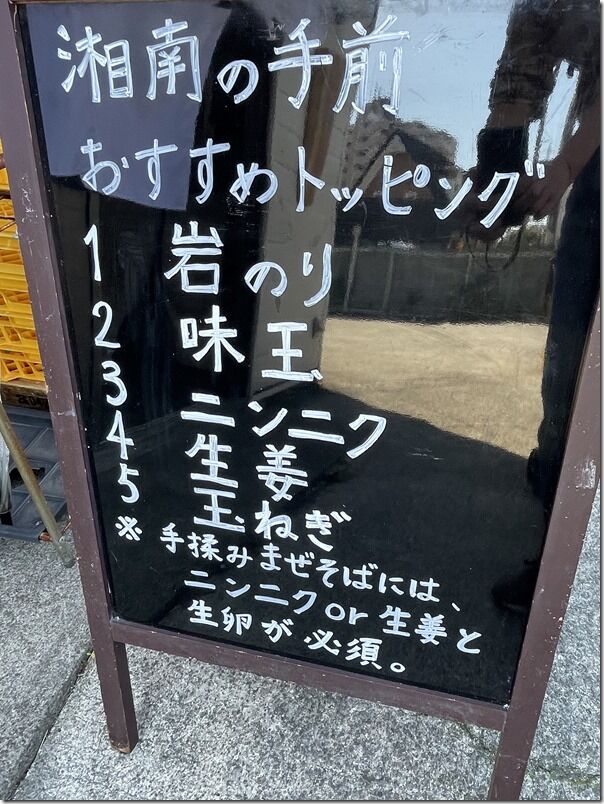 湘南の手前
おすすめトッピング
1 岩のり
2 味玉
3 ニンニク
4 生姜
5 玉ねぎ
※ 手揉みまぜそばには、
ニンニクor生姜と
生卵が必須。